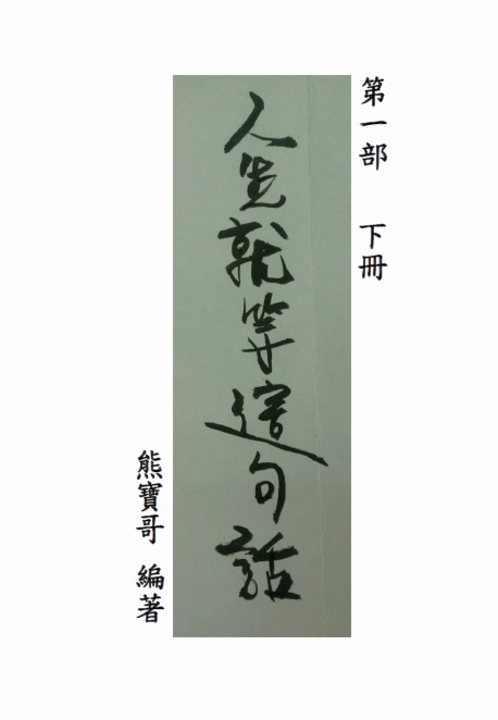 第一部 下冊
人生就等這句話
熊寶哥 編著